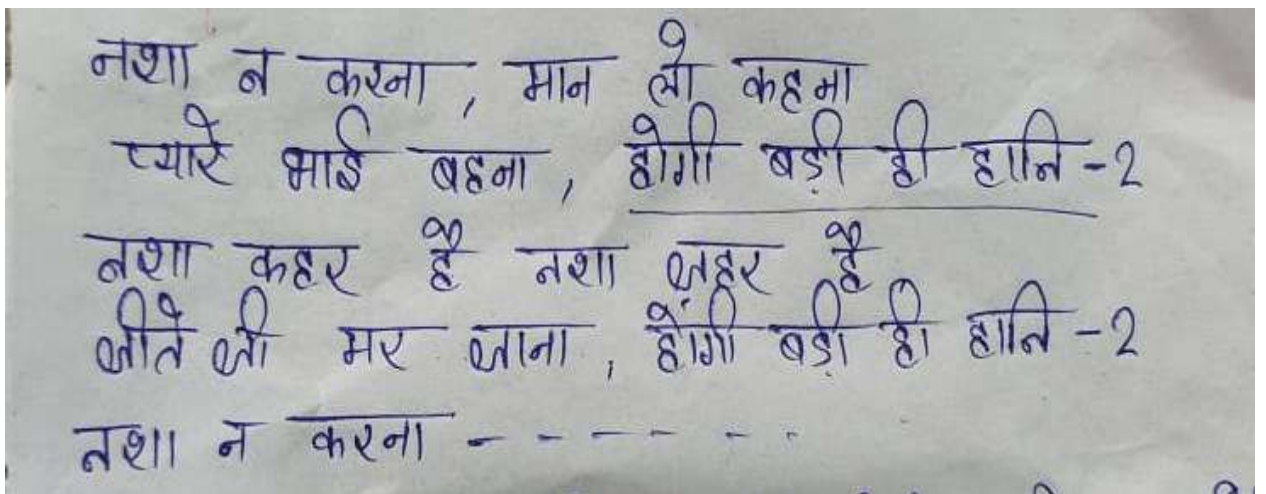 नशा न करना, मान लो कहना
प्यारे भाई बहना, होगी बड़ी ही हानि -2
नशा कहर है नशा ज़हर है
जीते जी मर जाना, होगी बड़ी ही हानि -2
नशा न करना - - - - - - -